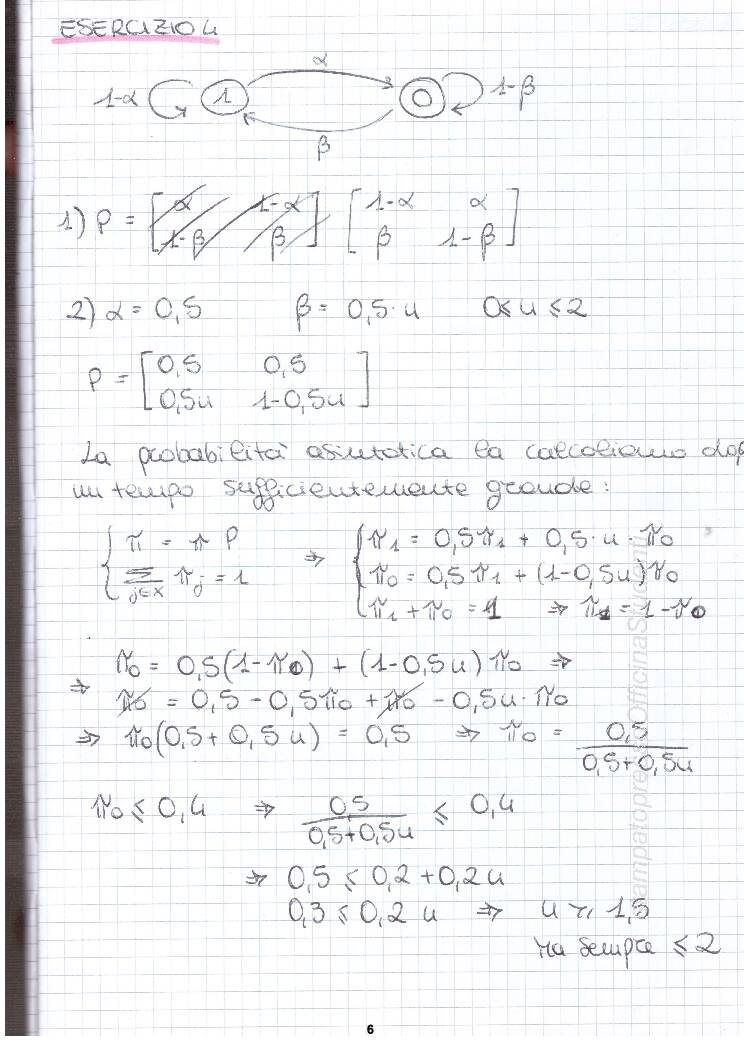 ESERCIZIO 4
α
1-α 1 0 1-β
β
1) P = [α 1-α; 1-β β] [1-α α; β 1-β]
2) α = 0,5 β = 0,5·u 0≤u≤2
P = [0,5 0,5; 0,5u 1-0,5u]
La probabilità asintotica la calcoliamo dop
un tempo sufficientemente grande:
{π = π P ⇒ {π1 = 0,5π1 + 0,5·u·π0
Σ j∈X πj = 1 π0 = 0,5π1 + (1-0,5u)π0
π1 + π0 = 1 ⇒ π1 = 1-π0
⇒ π0 = 0,5(1-π0) + (1-0,5u)π0 ⇒
π0 = 0,5 - 0,5π0 + π0 - 0,5u·π0
⇒ π0(0,5 + 0,5u) = 0,5 ⇒ π0 = 0,5/(0,5+0,5u)
π0 ≤ 0,4 ⇒ 0,5/(0,5+0,5u) ≤ 0,4
⇒ 0,5 ≤ 0,2 + 0,2u
0,3 ≤ 0,2u ⇒ u ≥ 1,5
ma sempre ≤ 2
6